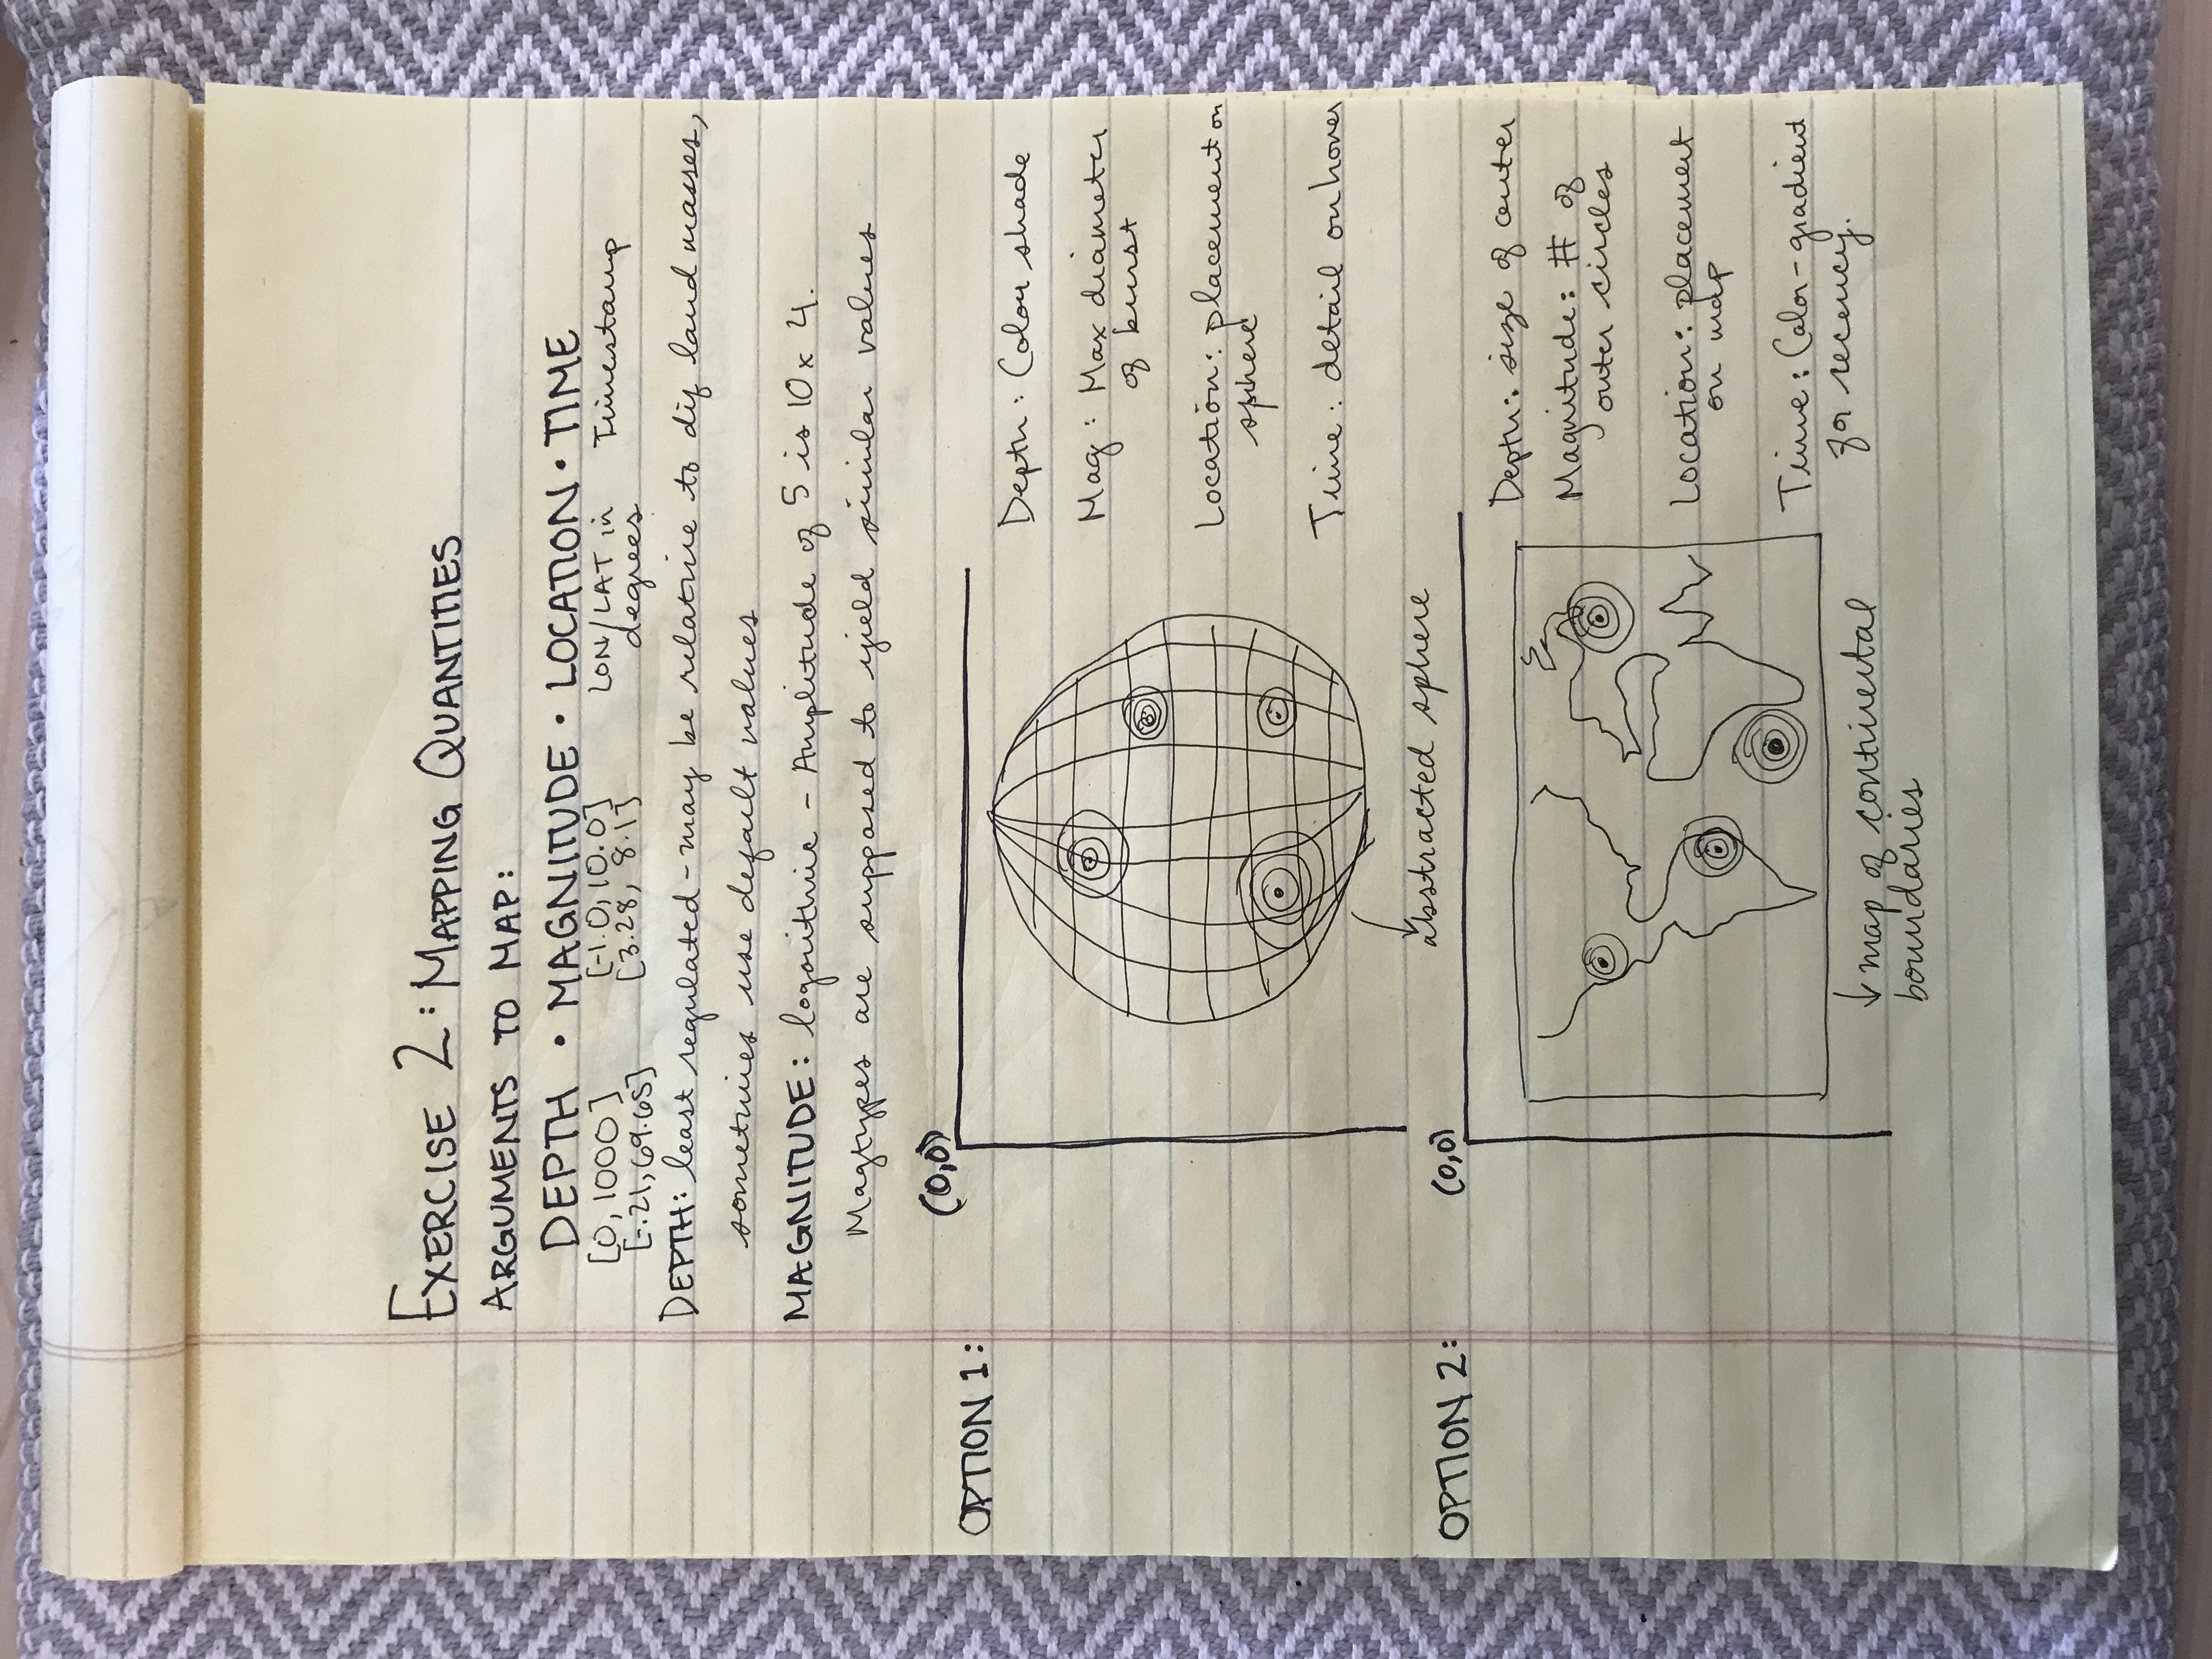 EXERCISE 2: MAPPING QUANTITIES
ARGUMENTS TO MAP:
DEPTH · MAGNITUDE · LOCATION · TIME
[0, 1000] [-1.0, 10.0] LON/LAT in Timestamp
[-.21, 69.65] [3.28, 8.1] degrees
DEPTH: least regulated - may be relative to dif land masses,
sometimes use default values
MAGNITUDE: logorithmic - Amplitude of 5 is 10x 4.
Magtypes are supposed to yield similar values
(0,0)
OPTION 1:
Depth: Colour shade
Mag: Max diameter
of burst
Location: placement on
sphere
Time: detail on hover
abstracted sphere
OPTION 2:
(0,0)
Depth: size of center
Magnitude: # of
outer circles
Location: placement
on map
Time: Color-gradient
for recency.
map of continental
boundaries